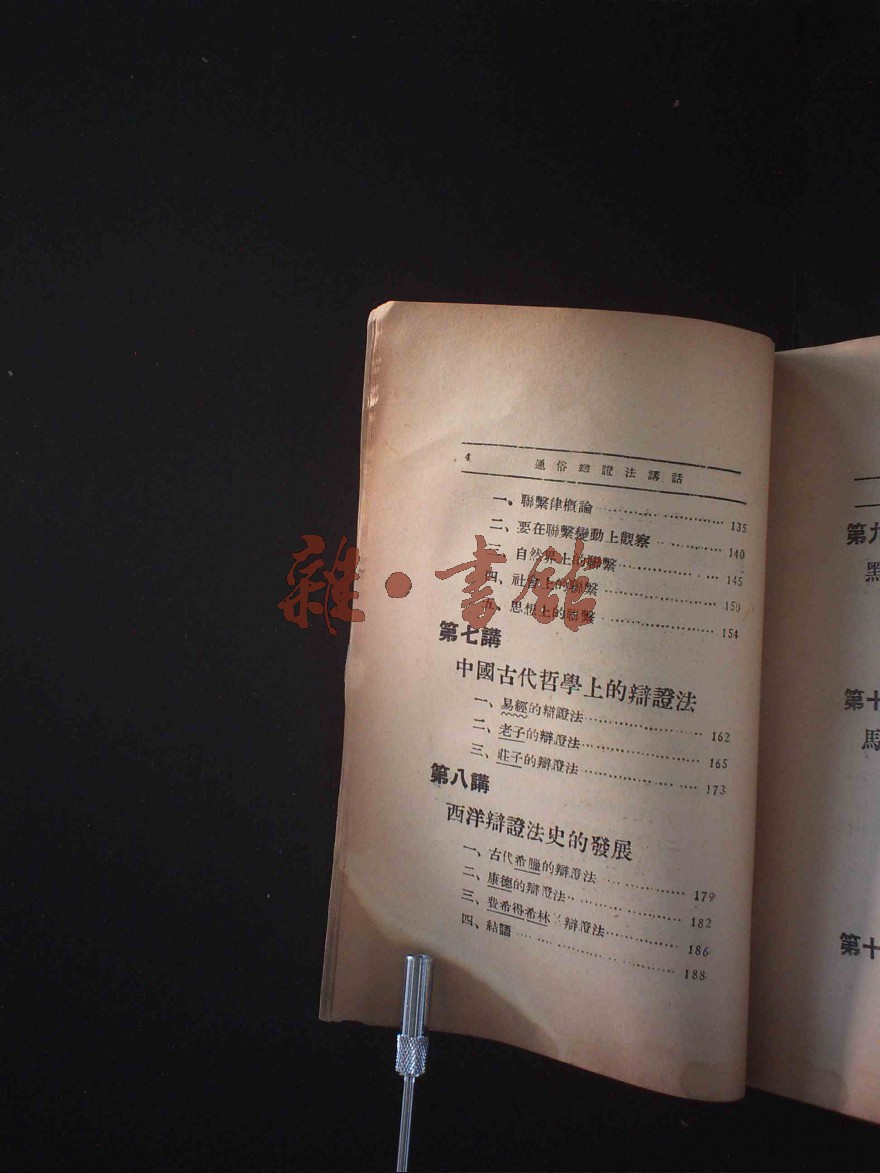 4 通俗辯證法講話
一、聯繫律概論 135
二、要在聯繫變動上觀察 140
三、自然界上的聯繫 145
四、社會上的聯繫 150
五、思想上的聯繫 154
第七講
中國古代哲學上的辯證法
一、易經的辯證法 162
二、老子的辯證法 165
三、莊子的辯證法 173
第八講
西洋辯證法史的發展
一、古代希臘的辯證法 179
二、康德的辯證法 182
三、費希得希林 辯證法 186
四、結語 188
第九
第十
馬
第十
雜·書館